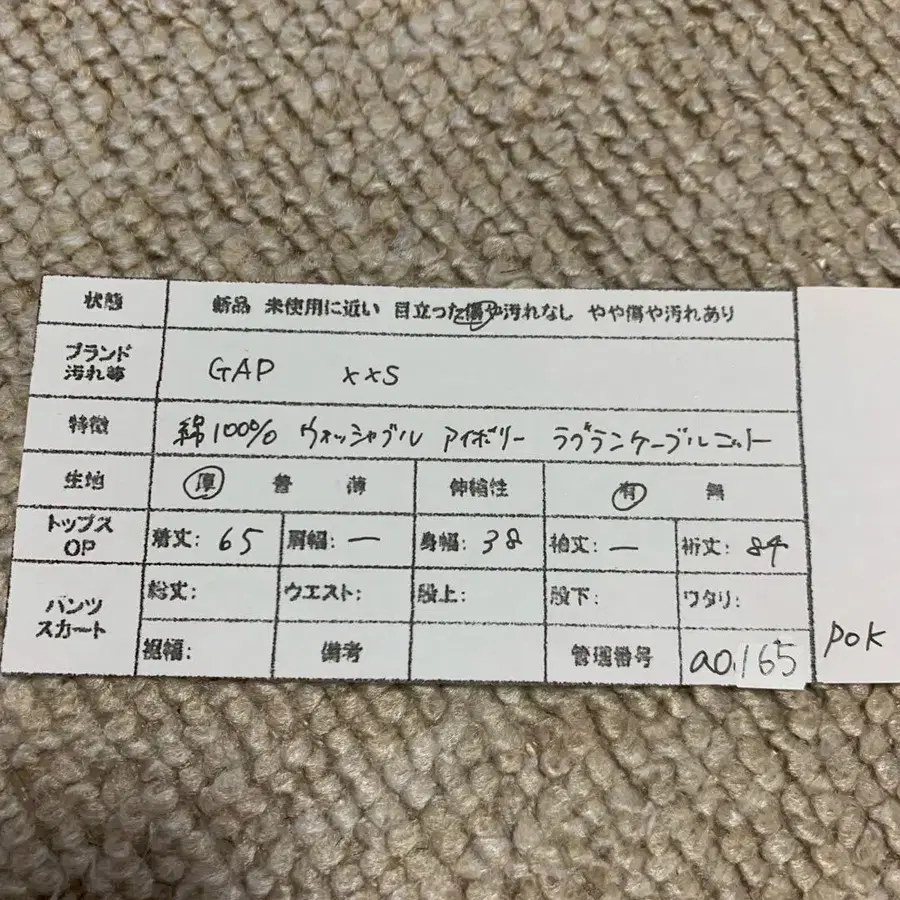 状態 新品 未使用に近い 目立った傷や汚れなし やや傷や汚れあり
ブランド
汚れ等 GAP XXS
特徴 綿100% ウォッシャブル アイボリー ラグランケーブルニット
生地 厚 普 薄 伸縮性 有 無
トップス
OP 着丈: 65 肩幅: ー 身幅: 38 袖丈: ー 裄丈: 84
パンツ
スカート 総丈: ウエスト: 股上: 股下: ワタリ:
裾幅: 備考 管理番号 a0.165
POK